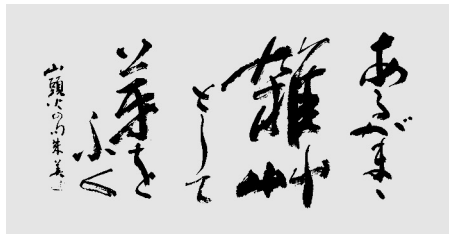 あるがまゝ
雑艸
として
芽を
ふく
山頭火の句 朱美